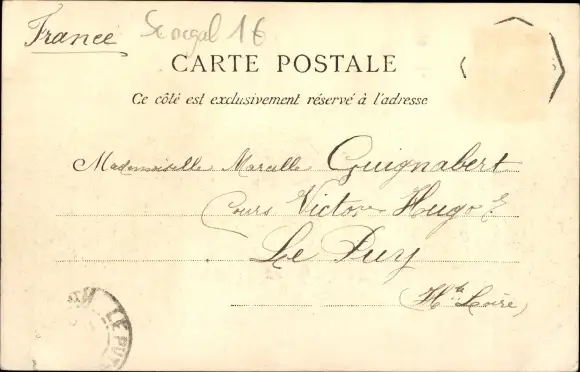 France
Senegal 1€
CARTE POSTALE
Ce côté est exclusivement réservé à l'adresse
Mademoiselle Marcelle Guignabert
Cours Victor Hugo
Le Puy
(Hte Loire)
LE PUY